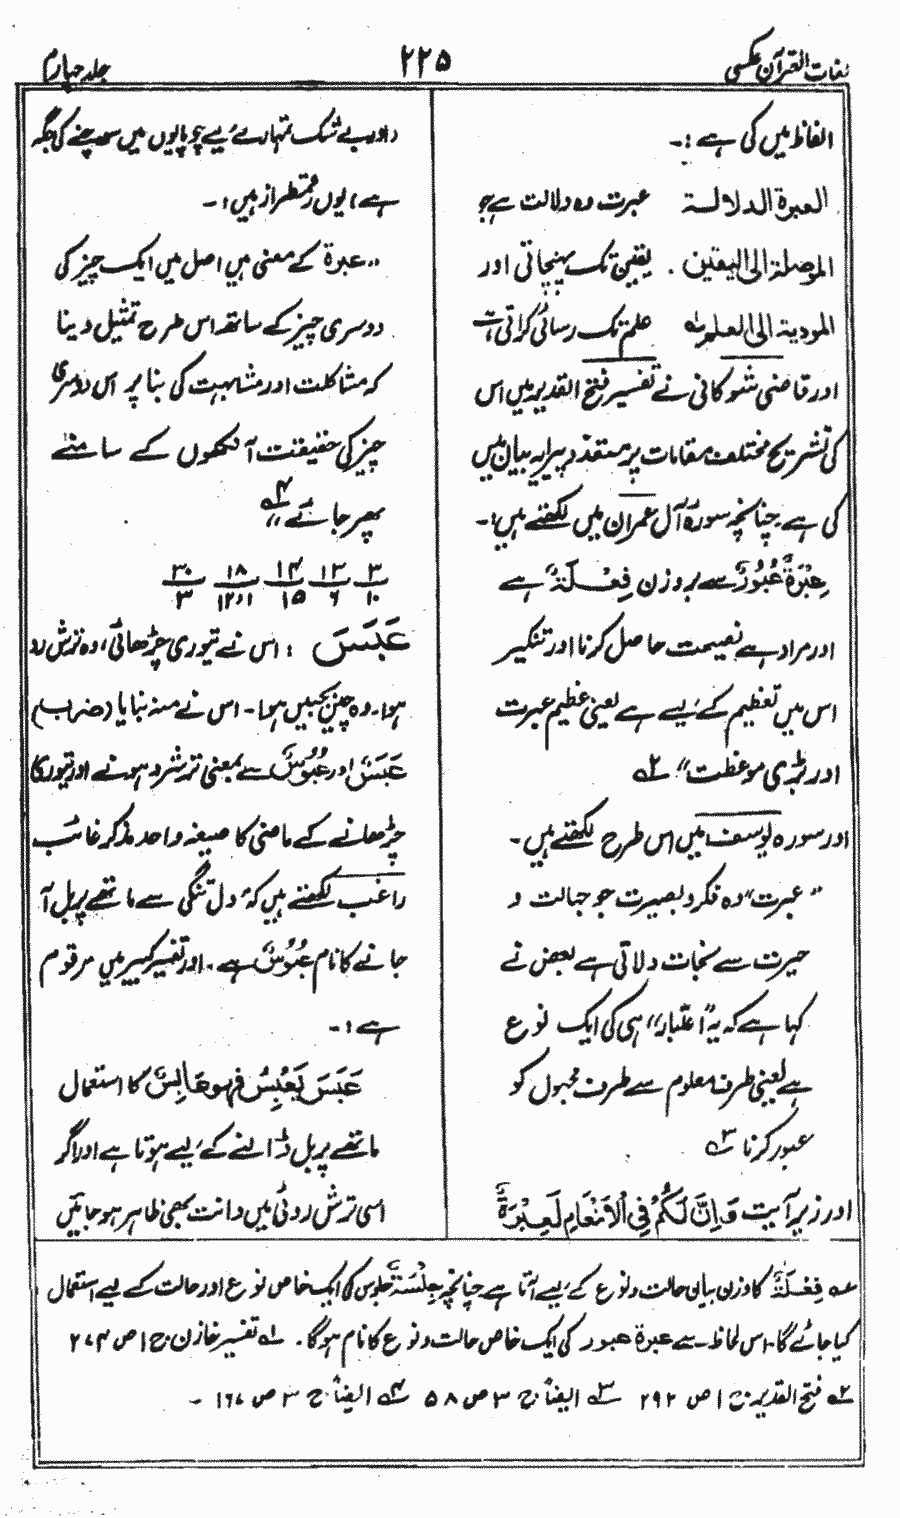 لغات القرآن عکسی
۲۲۵
جلد چہارم
الفاظ میں کی ہے :۔
العبرۃ الدلالۃ عبرت وہ دلالت ہے جو
الموصلۃ الی الیقین . یقین تک پہنچاتی اور
المودیۃ الی العلم لہ علم تک رسائی کراتی ہے
اور قاضی شوکانی نے تفسیر فتح القدیر میں اس
کی تشریح مختلف مقامات پر متعدد پیرایہ بیان میں
کی ہے چنانچہ سورہ آل عمران میں لکھتے ہیں :۔
عِبْرَةٌ عُبُوْرٌ سے بروزن فِعْلَةٌ ہے
اور مراد ہے نصیحت حاصل کرنا اور تنکیر
اس میں تعظیم کے لیے ہے یعنی عظیم عبرت
اور بڑی موعظت" ۲ہ
اور سورہ یوسف میں اس طرح لکھتے ہیں ۔
" عبرت" وہ فکر و بصیرت جو جہالت و
حیرت سے نجات دلاتی ہے بعض نے
کہا ہے کہ یہ "اعتبار" ہی کی ایک نوع
ہے یعنی طرف معلوم سے طرف مجہول کو
عبور کرنا ۳ہ
اور زیر آیت وَاِنَّ لَكُمْ فِي الْاَنْعَامِ لَعِبْرَةً
داور بے شک تمہارے لیے چوپایوں میں سوچنے کی جگہ
ہے) یوں رقمطراز ہیں :۔
"عبرۃ کے معنی ہیں اصل میں ایک چیز کی
دوسری چیز کے ساتھ اس طرح تمثیل دینا
کہ مشاکلت اور مشابہت کی بنا پر اس دوسری
چیز کی حقیقت آنکھوں کے سامنے
پھر جائے" ۴ہ
۳/۱۰ ۱۳/۶ ۱۴/۱۵ ۱۸/۱۲،۱ ۳۰/۳
عَبَسَ : اس نے تیوری چڑھائی، وہ ترش رو
ہوا۔ وہ چیں بجبیں ہوا۔ اس نے منہ بنایا (ضرب)
عَبَسَ اور عُبُوْسٌ سے بمعنی ترشرو ہونے اور تیوری کا
چڑھانے کے ماضی کا صیغہ واحد مذکر غائب
راغب لکھتے ہیں کہ دل تنگی سے ماتھے پر بل آ
جانے کا نام عُبُوْسٌ ہے ۔ اور تفسیر کبیر میں مرقوم
ہے :۔
عَبَسَ یَعْبِسُ فهو عَابِسٌ کا استعمال
ماتھے پر بل ڈالنے کے لیے ہوتا ہے اور اگر
اسی ترش روئی میں دانت بھی ظاہر ہو جائیں
۱ہ فِعْلَةٌ کا وزن بیان حالت و نوع کے لیے آتا ہے چنانچہ جِلْسَةٌ جلوس کی ایک خاص نوع اور حالت کے لیے استعمال
کیا جائے گا۔ اس لحاظ سے عبرۃ عبور کی ایک خاص حالت و نوع کا نام ہوگا ۔ ۱ہ تفسیر خازن ج ۱ ص ۲۷۴
۲ہ فتح القدیر ج ۱ ص ۲۹۲ ۳ہ ایضاً ج ۳ ص ۵۸ ۴ہ ایضاً ج ۳ ص ۱۶۷ ۔